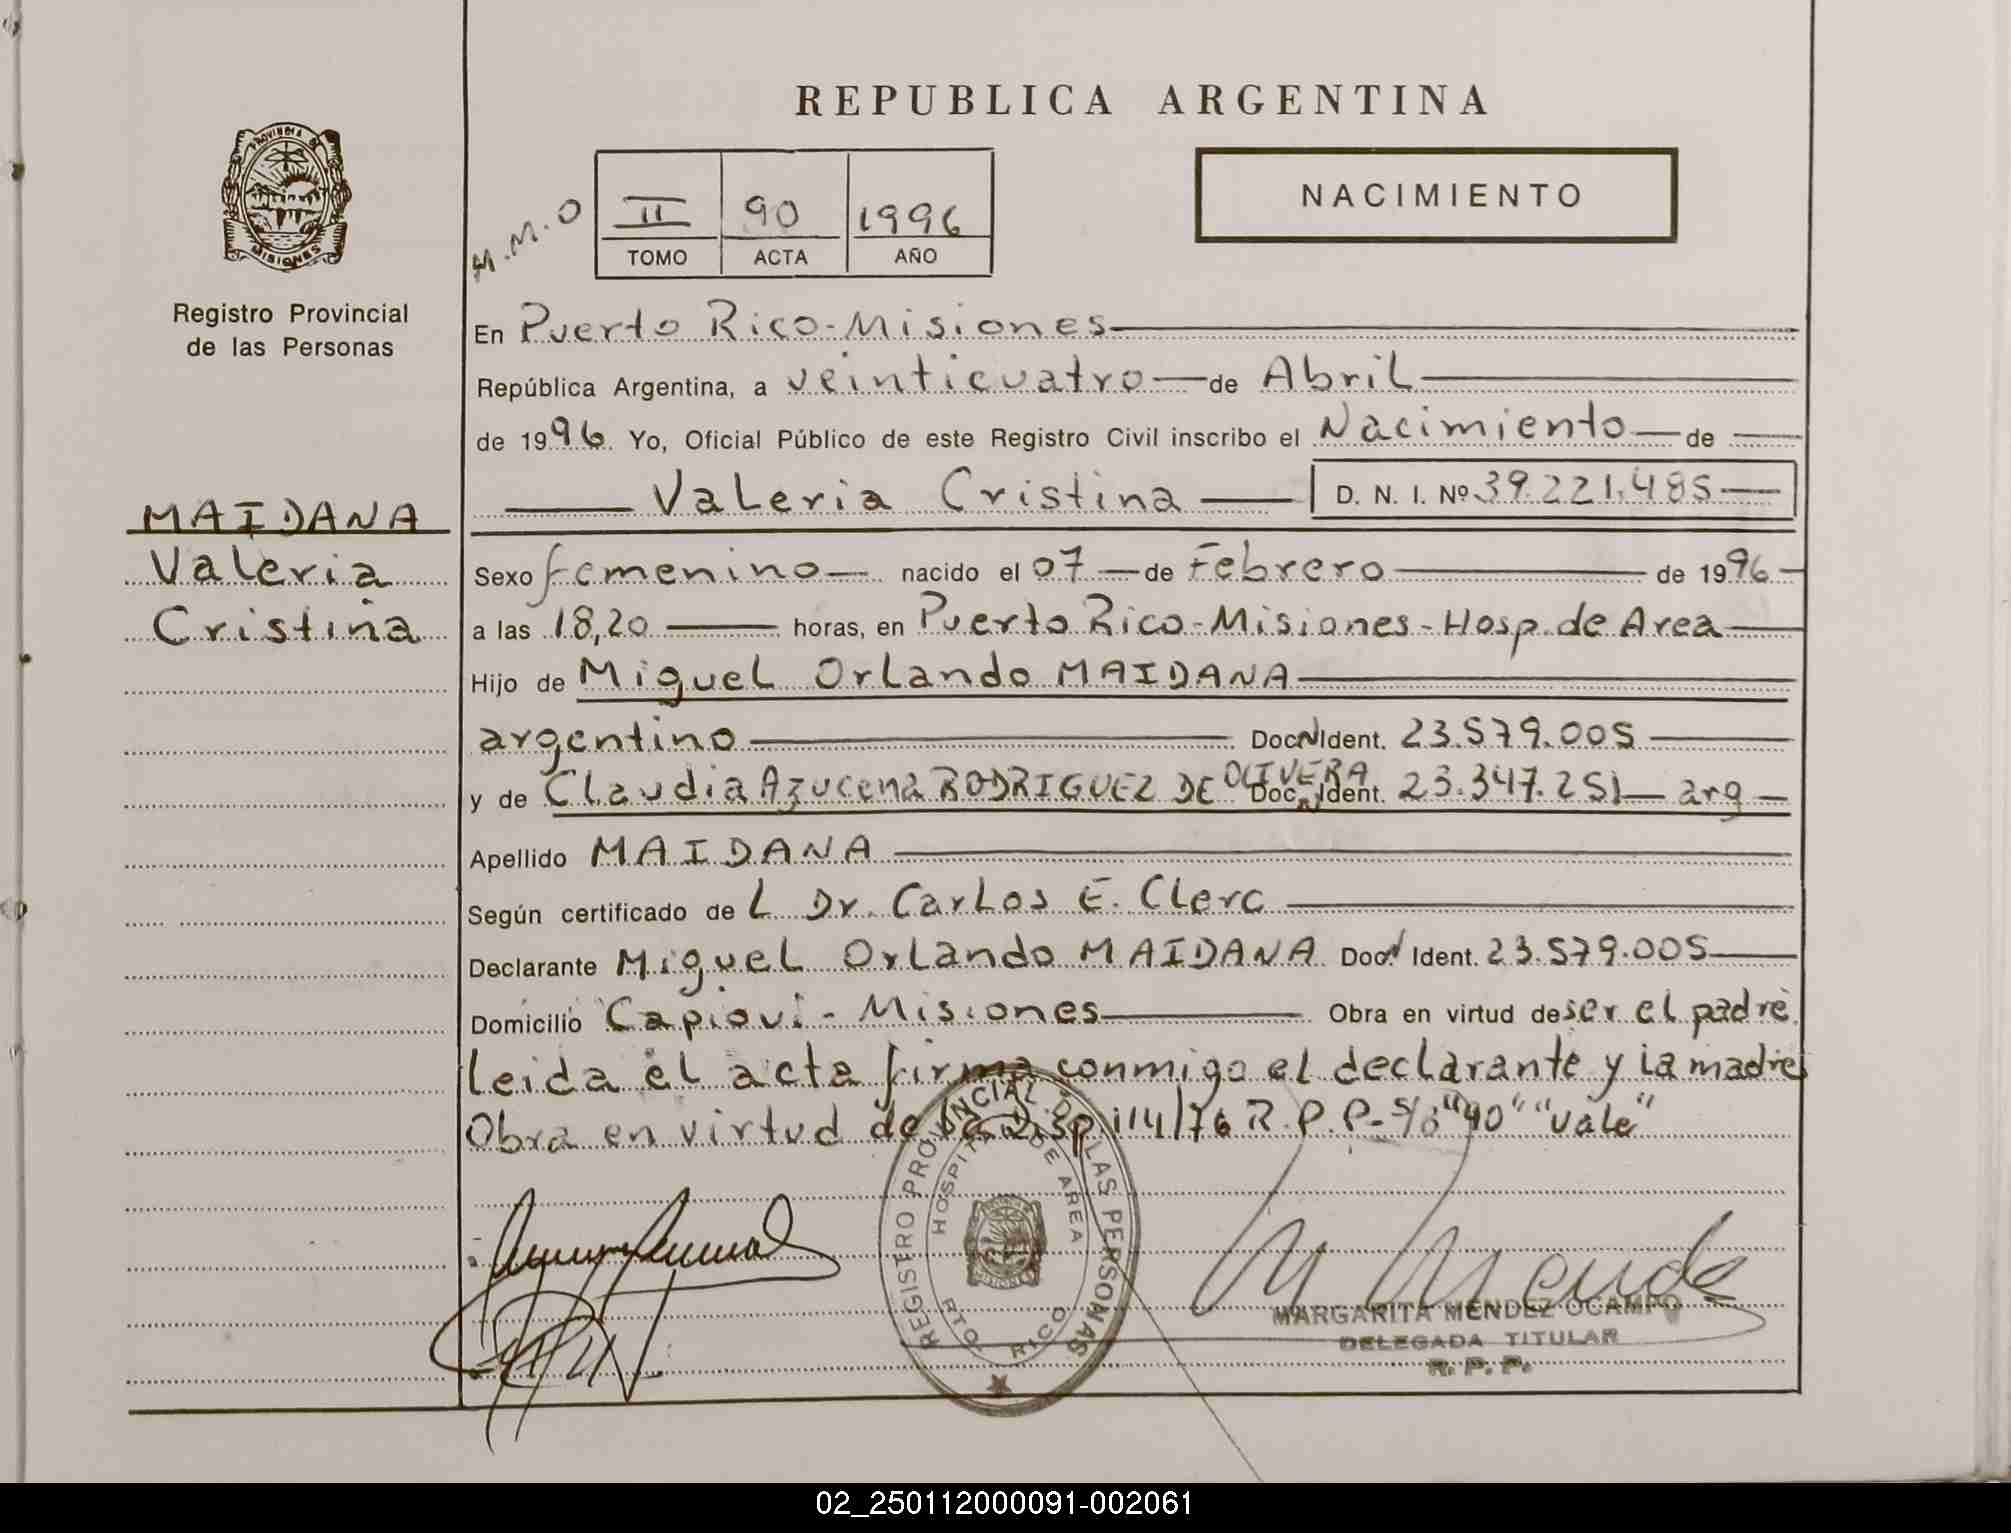 REPUBLICA ARGENTINA
PROVINCIA DE MISIONES
Registro Provincial
de las Personas
M.M.O
II 90 1996
TOMO ACTA AÑO
NACIMIENTO
En Puerto Rico-Misiones
República Argentina, a veinticuatro de Abril
de 1996 Yo, Oficial Público de este Registro Civil inscribo el Nacimiento de
Valeria Cristina D. N. I. Nº 39.221.485
MAIDANA
Valeria
Cristina
Sexo femenino nacido el 07 de Febrero de 1996
a las 18,20 horas, en Puerto Rico-Misiones-Hosp. de Area
Hijo de Miguel Orlando MAIDANA
argentino Doc N Ident. 23.579.005
y de Claudia Azucena RODRIGUEZ DE OLIVERA Doc. N Ident. 23.347.251 arg
Apellido MAIDANA
Según certificado de L Dr. Carlos E. Clerc
Declarante Miguel Orlando MAIDANA Doc. N Ident. 23.579.005
Domicilio Capiovi - Misiones Obra en virtud de ser el padre
leida el acta firma conmigo el declarante y la madre
Obra en virtud de la Disp. 114/76 R.P.P- S/b "90" "vale"
REGISTRO PROVINCIAL DE LAS PERSONAS
HOSPITAL DE AREA
PTO. RICO
MISIONES
M Mende
MARGARITA MENDEZ OCAMPO
DELEGADA TITULAR
R. P. P.
02_250112000091-002061